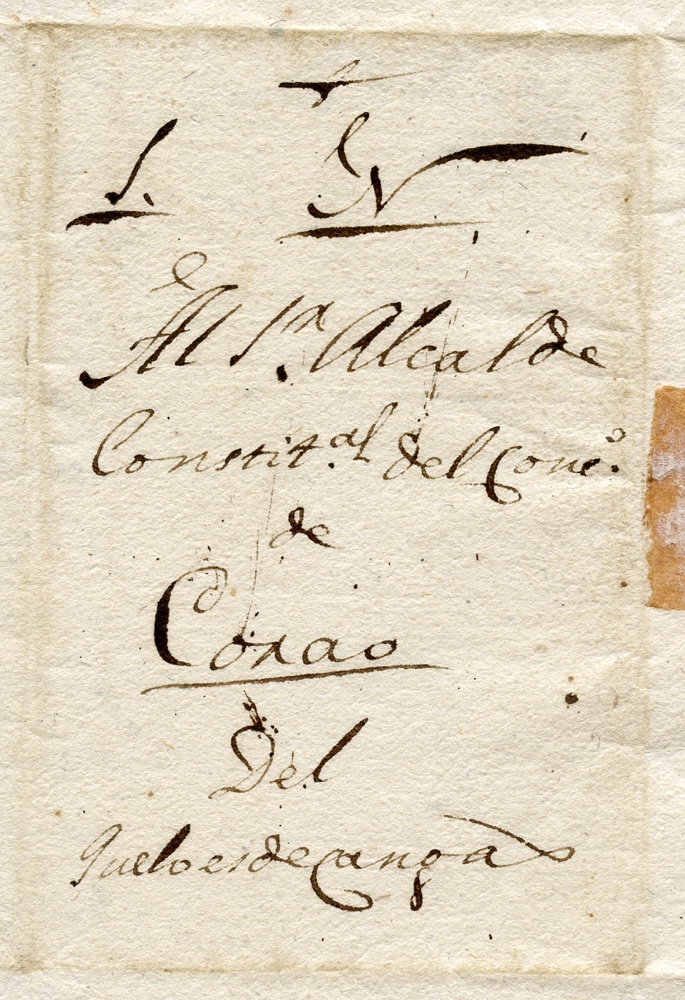 S. N
Al S.r Alcalde
Constit.al del Conc.o
de
Corao
Del
que lo es de Cangas